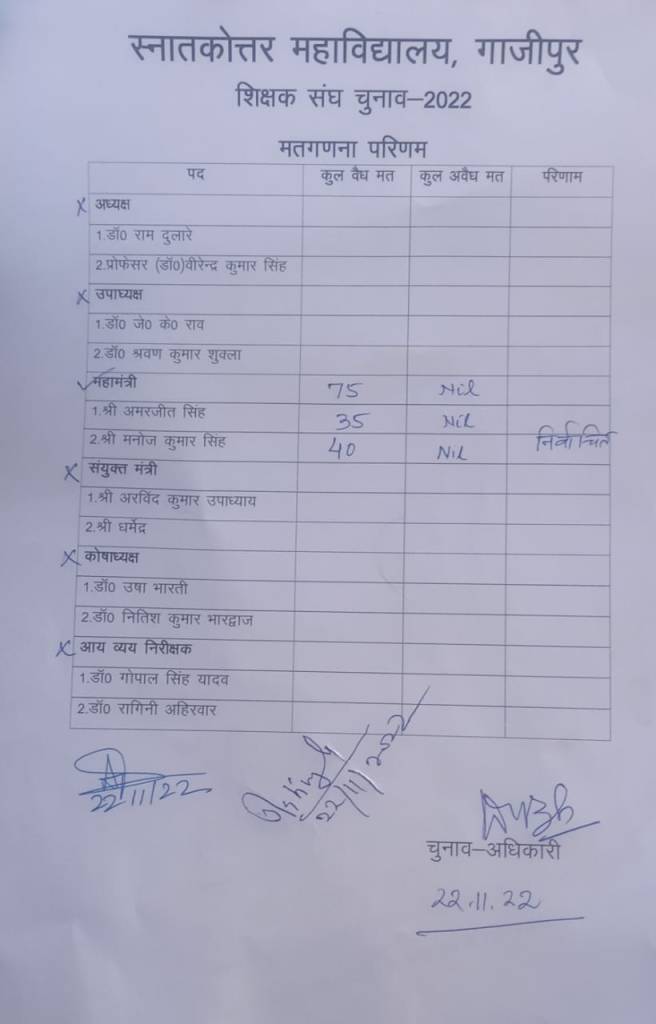 स्नातकोत्तर महाविद्यालय, गाजीपुर
शिक्षक संघ चुनाव–2022
मतगणना परिणम
पद कुल वैघ मत कुल अवैघ मत परिणाम
x अध्यक्ष
1.डॉ0 राम दुलारे
2.प्रोफेसर (डॉ0)वीरेन्द्र कुमार सिंह
x उपाध्यक्ष
1.डॉ0 जे0 के0 राव
2.डॉ0 श्रवण कुमार शुक्ला
✓ महामंत्री 75 Nil
1.श्री अमरजीत सिंह 35 Nil
2.श्री मनोज कुमार सिंह 40 Nil निर्वाचित
x संयुक्त मंत्री
1.श्री अरविंद कुमार उपाध्याय
2.श्री धर्मेंद्र
x कोषाध्यक्ष
1.डॉ0 उषा भारती
2.डॉ0 नितिश कुमार भारद्वाज
x आय व्यय निरीक्षक
1.डॉ0 गोपाल सिंह यादव
2.डॉ0 रागिनी अहिरवार
22/11/22
22/11/2022
चुनाव–अधिकारी
22.11.22